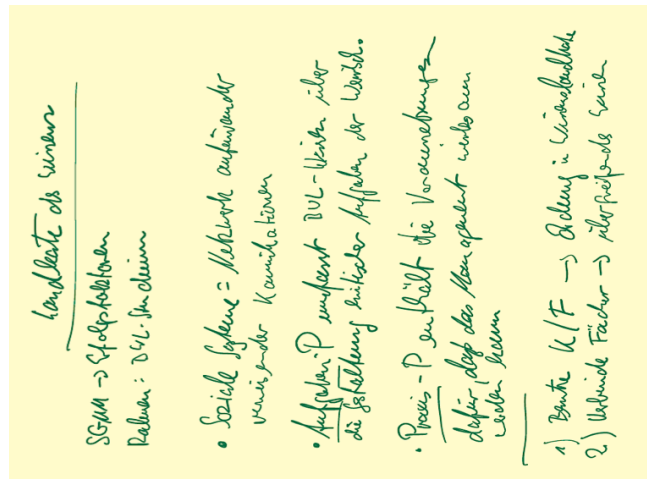 Landkarte des Wissens
SGMM → Erfolgsfaktoren
Rahmen: 
• Soziale Systeme = Netzwerk aufeinander
verweisender Kommunikationen
• Aufgaben-P umfasst Wissen über
die Gestaltung kritischer Aufgaben der Wertsch.
• Praxis-P enthält die Voraussetzungen
dafür, dass das Management wirksam
werden kann
1) K/F → Ordnung in Wissenslandkarte
2) Verbinde Fächer → übergreifendes Wissen